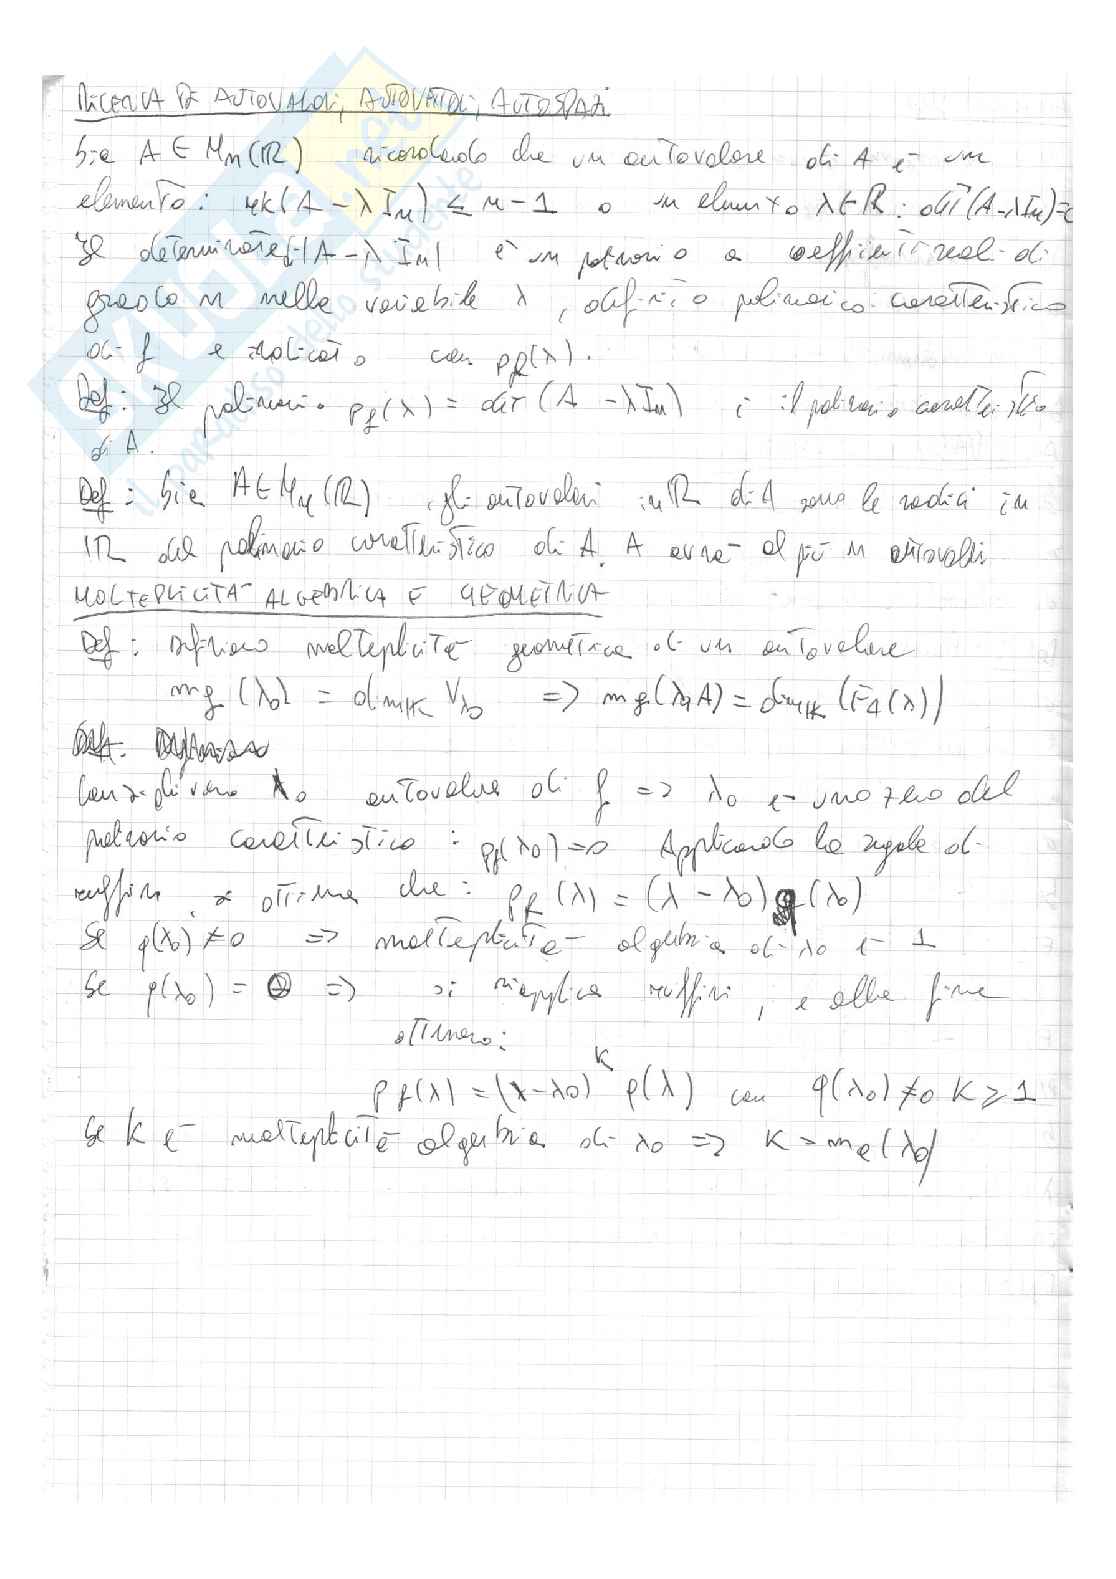 RICERCA DI AUTOVALORI, AUTOVETTORI, AUTOSPAZI
Sia A ∈ Mn(ℝ) ricordando che un autovalore di A è un
elemento: rk(A - λIn) ≤ n-1 o un elemento λ∈ℝ: det(A-λIn)=0
Il determinante |A - λIn| è un polinomio a coefficienti reali di
grado n nella variabile λ, definito polinomio caratteristico
di f e indicato con pf(λ).
Def: Il polinomio pf(λ) = det(A - λIn) è il polinomio caratteristico
di A.
Def: Sia A∈Mn(ℝ), gli autovalori in ℝ di A sono le radici in
ℝ del polinomio caratteristico di A. A avrà al più n autovalori
MOLTEPLICITÀ ALGEBRICA E GEOMETRICA
Def: Definiamo molteplicità geometrica di un autovalore
mg(λ0) = dimK Vλ0 => mg(λ,A) = dimK(EA(λ))
Consideriamo λ0 autovalore di f => λ0 è uno zero del
polinomio caratteristico: pf(λ0)=0 Applicando la regola di
ruffini, si ottiene che: pf(λ) = (λ - λ0)q(λ0)
Se q(λ0) ≠ 0 => molteplicità algebrica di λ0 è 1
Se q(λ0) = 0 => si riapplica ruffini, e alla fine
otteniamo:
pf(λ) = (λ-λ0)^K q(λ) con q(λ0) ≠ 0 K ≥ 1
Se K è molteplicità algebrica di λ0 => K = ma(λ0)
il paradiso dello studente